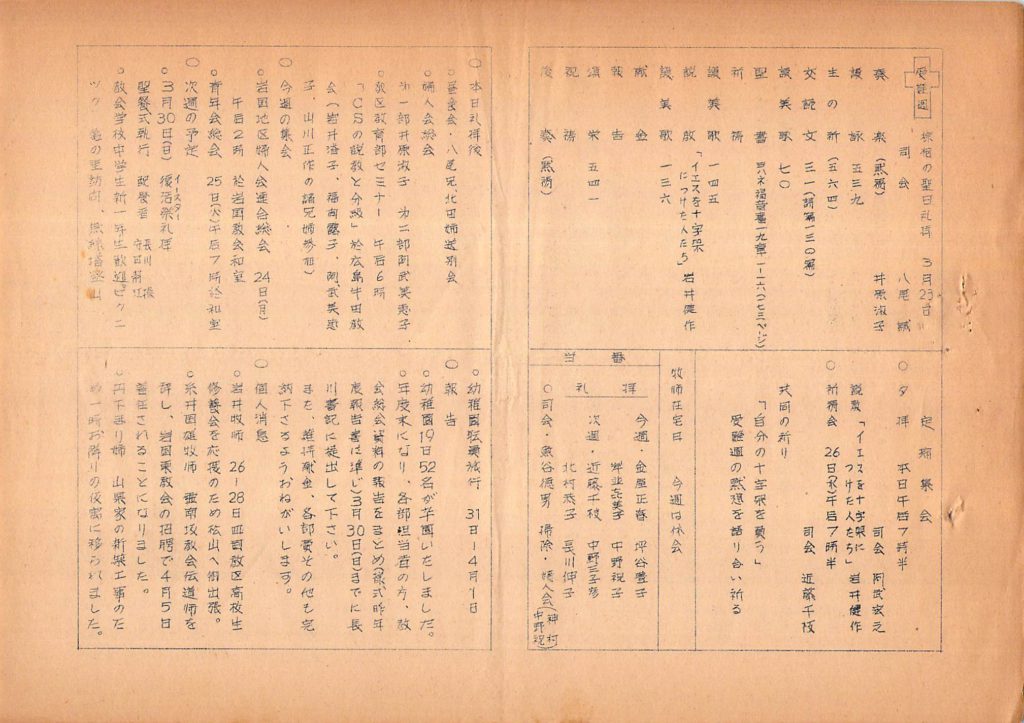 受難週
棕梠の聖日礼拝 3月23日
司会 八尾
奏楽(黙祷) 井原淑子
讃詠 五三九
主の祈(五六四)
交読文 三一(詩篇一三〇篇)
讃美歌 七〇
聖書 ヨハネ福音書一九章一-一六(一七三ページ)
祈祷
讃美歌 一四五
説教 「イエスを十字架
につけた人たち」 岩井健作
讃美歌 一三六
献金
報告
頌栄 五四一
祝祷
後奏(黙祷)
定期集会
○夕拝 本日午后7時半
司会 阿武宏之
説教「イエスを十字架に
つけた人たち」 岩井健作
○祈祷会 26日(水)午后7時半
司会 近藤千枝
共同の祈り
「自分の十字架を負う」
受難週の黙想を語り合い祈る
牧師在宅日 今週は休会
当番
礼拝
今週・金屋正春 坪谷豊子
坪並克美子 中野祝子
次週・近藤千枝 中野三子彦
北村恭子 長川伸子
○司会・魚谷徳男 掃除・婦人会(神村
中野祝)
○本日礼拝後
○昼食会・八尾兄、北田姉送別会
○婦人会総会
第一部井原淑子 第二部阿武美恵子
○教区教育部セミナー 午后6時
「CSの説教と分級」於広島牛田教
会(岩井溢子、福岡露子、阿武美恵
子、山川正作の諸兄姉参加)
○今週の集会
○岩国地区婦人会連合総会 24日(月)
午后2時 於岩国教会和室
○青年会総会 25日(火)午后7時於和室
○次週の予定
○3月30日(日) 復活祭礼拝
イースター
聖餐式執行 配餐者 長川
守田
○教会学校中学生新一年生歓迎ピクニ
ック
○報告
○幼稚園転湯旅行 31日-4月1日
○幼稚園19日52名が卒園いたしました。
○年度末になり、各部担当者の方、教
会総会資料の報告をまとめ(様式昨年
度報告書に準じ)3月30日(日)までに長
川書記に提出して下さい。
また、維持献金、各部費その他も完
納下さるようおねがいします。
○個人消息
○岩井牧師 26-28日四国教区高校生
修養会を応援のため松山へ出張。
○糸井国雄牧師 教会伝道師を
辞し、岩国東教会の招聘で4月5日
着任されることになりました。
○丹下 姉 山県家の新築工事のた
め一時お隣りの後室に移られました。